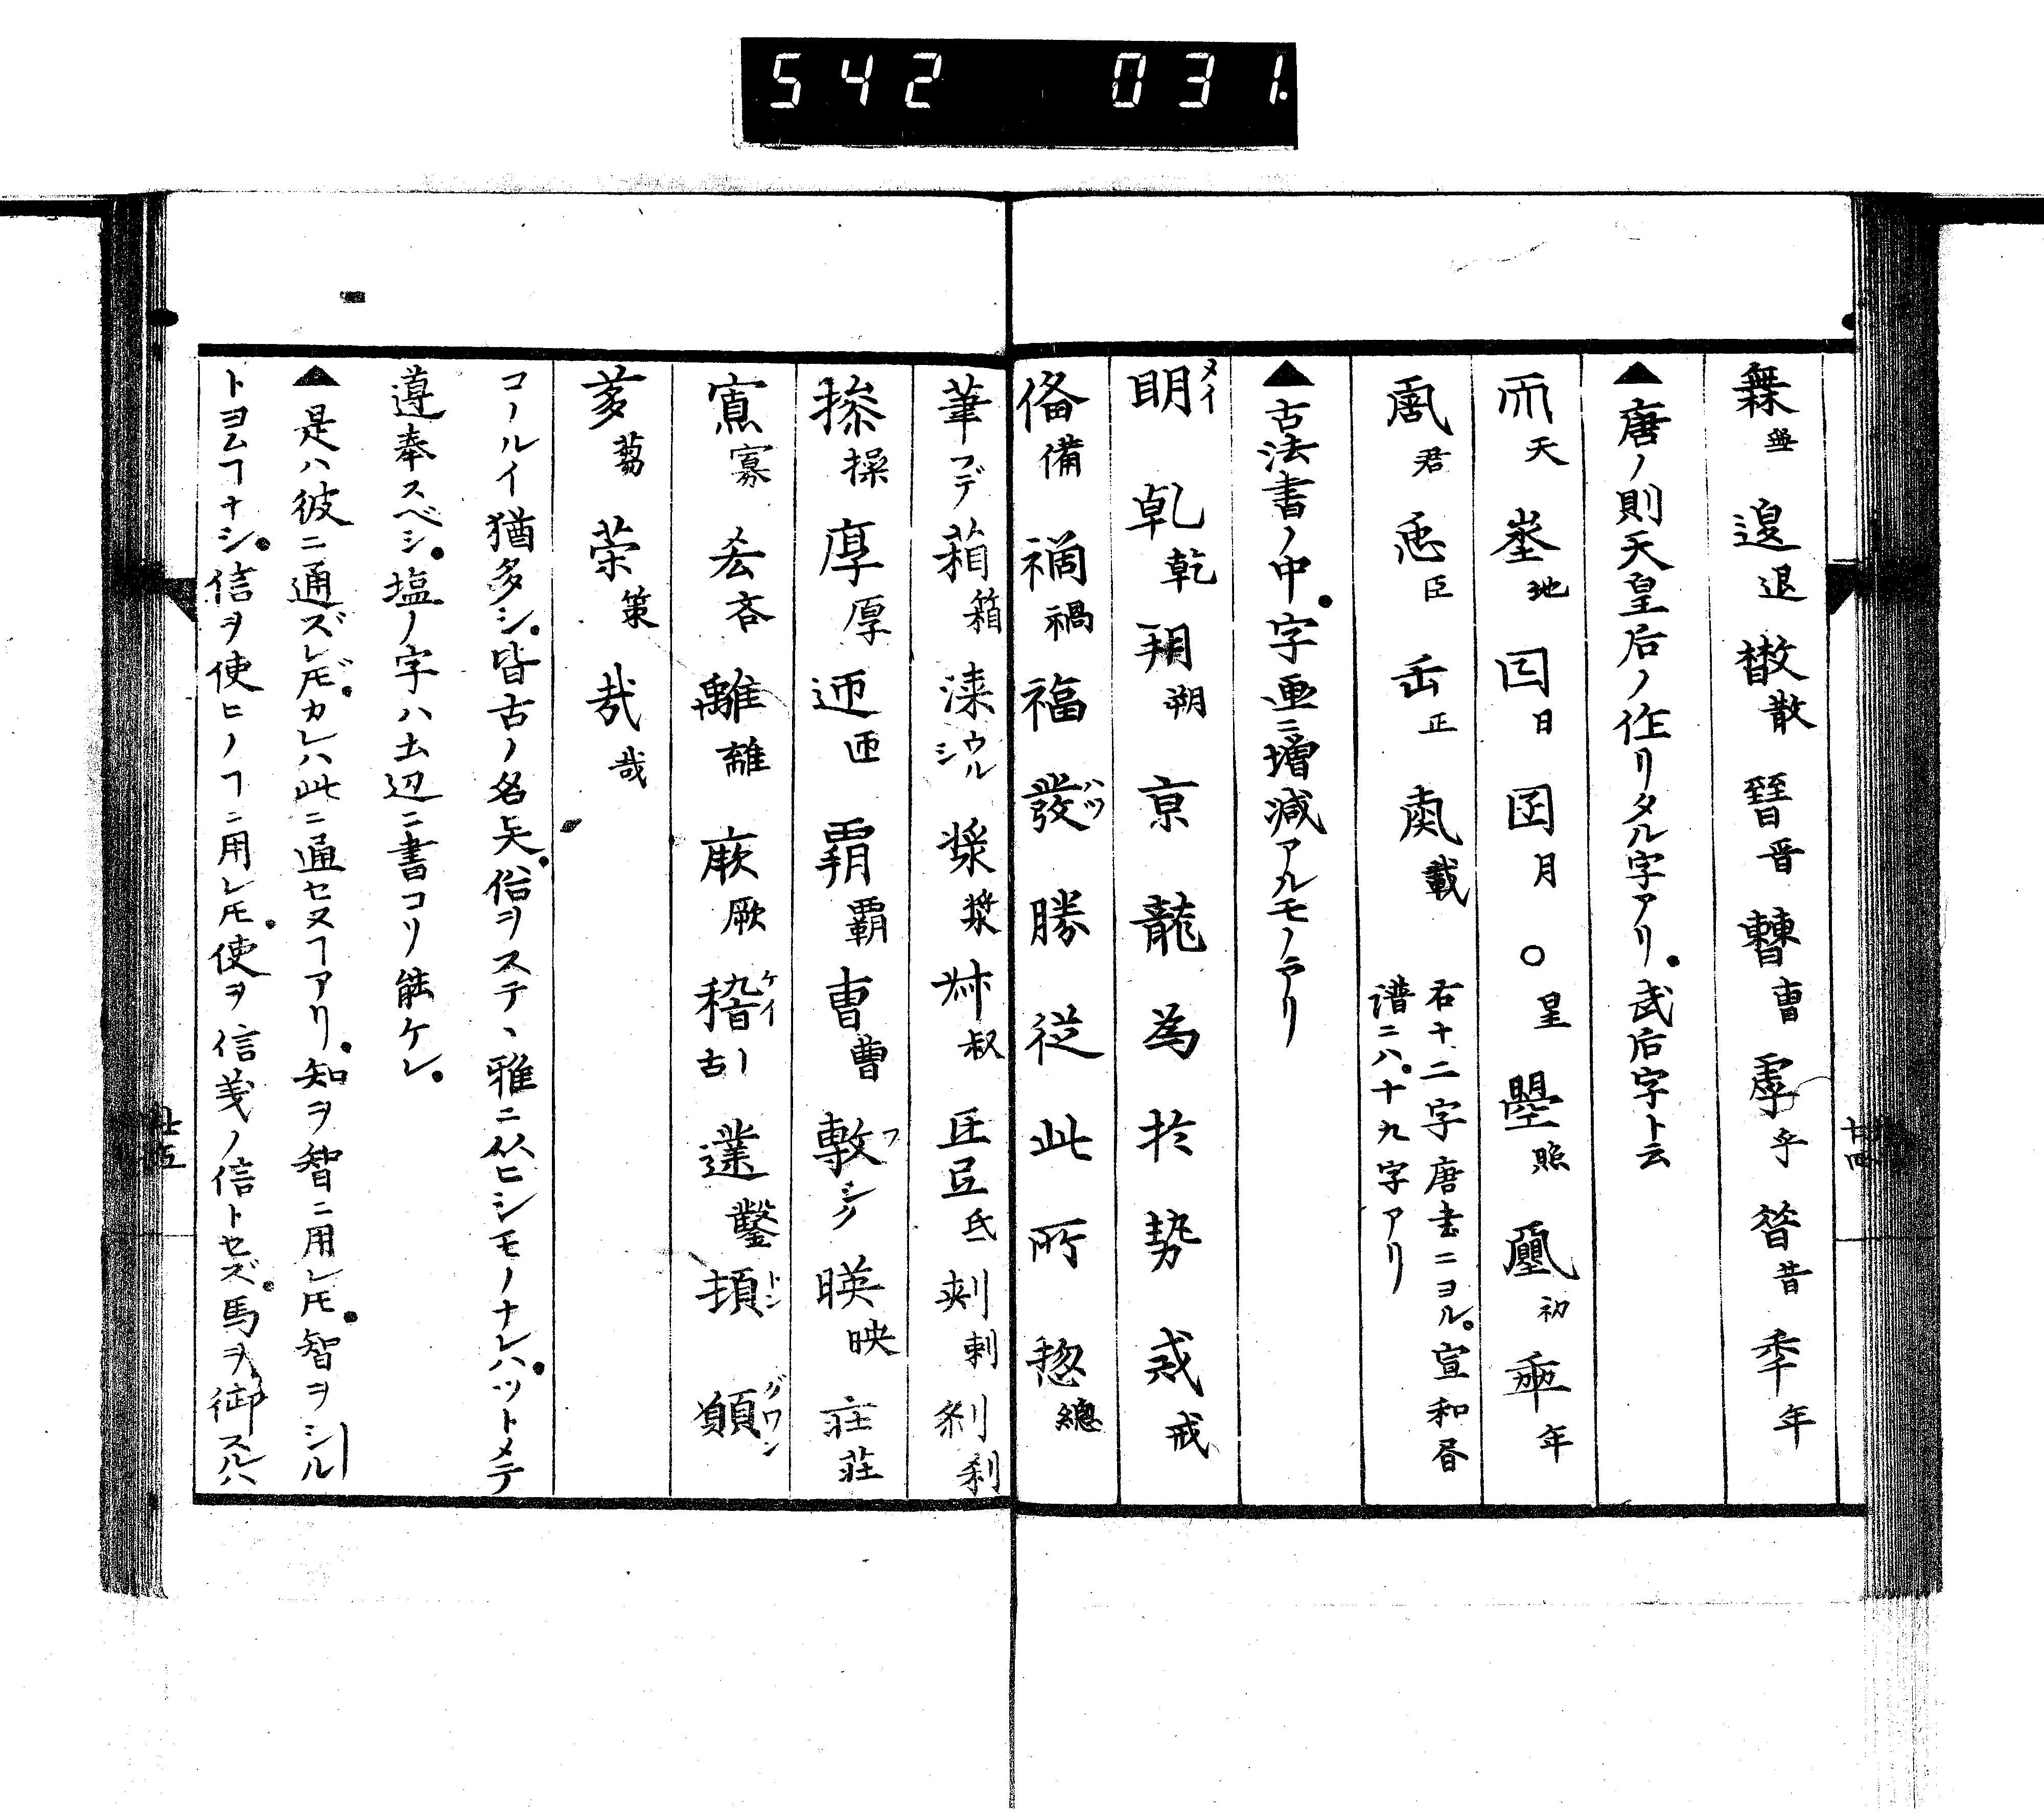 542 031.
橆無 𨓤退 㪔散 晉晋 曹曺 虖乎 昝昔 秊年
▲唐ノ則天皇后ノ作リタル字アリ。武后字ト云
𠀑天 埊地 囸日 囝月 〇星 曌照 𡔈初 𠡦年
𠺞君 𢘑臣 𠙺正 𡕀載 右十二字唐書ニヨル。宣和書
譜ニハ。十九字アリ
▲古法書ノ中。字画ニ増減アルモノアリ
明メイ 乹乾 朔朔 亰 龍 為 扵 勢 戒戒
俻備 禍禍 福 發ハツ 勝 従 此 所 揔總
葦フデ 葙箱 漆ウルシ 漿漿 叔叔 互氐 刾刺 刹刹
搡操 厚厚 迊匝 覇覇 曺曹 敷フシク 暎映 庄莊
寡寡 吝吝 離離 厥厥 稽ケイ古ー 鑿鑿 頓トン 願グワン
蒭蒭 䇿策 㢤哉
コノルイ猶多シ。皆古ノ名矢。俗ヲステヽ雅ニ似ヒシモノナレハ。ツトメテ
遵奉スベシ。塩ノ字ハ土辺ニ書コソ能ケレ。
▲是ハ彼ニ通ズレ𪜈。カレハ此ニ通セヌヿアリ。知ヲ智ニ用レ𪜈。智ヲシル
トヨムヿナシ。信ヲ使ヒノヿニ用レ𪜈。使ヲ信義ノ信トセズ。馬ヲ御スルハ